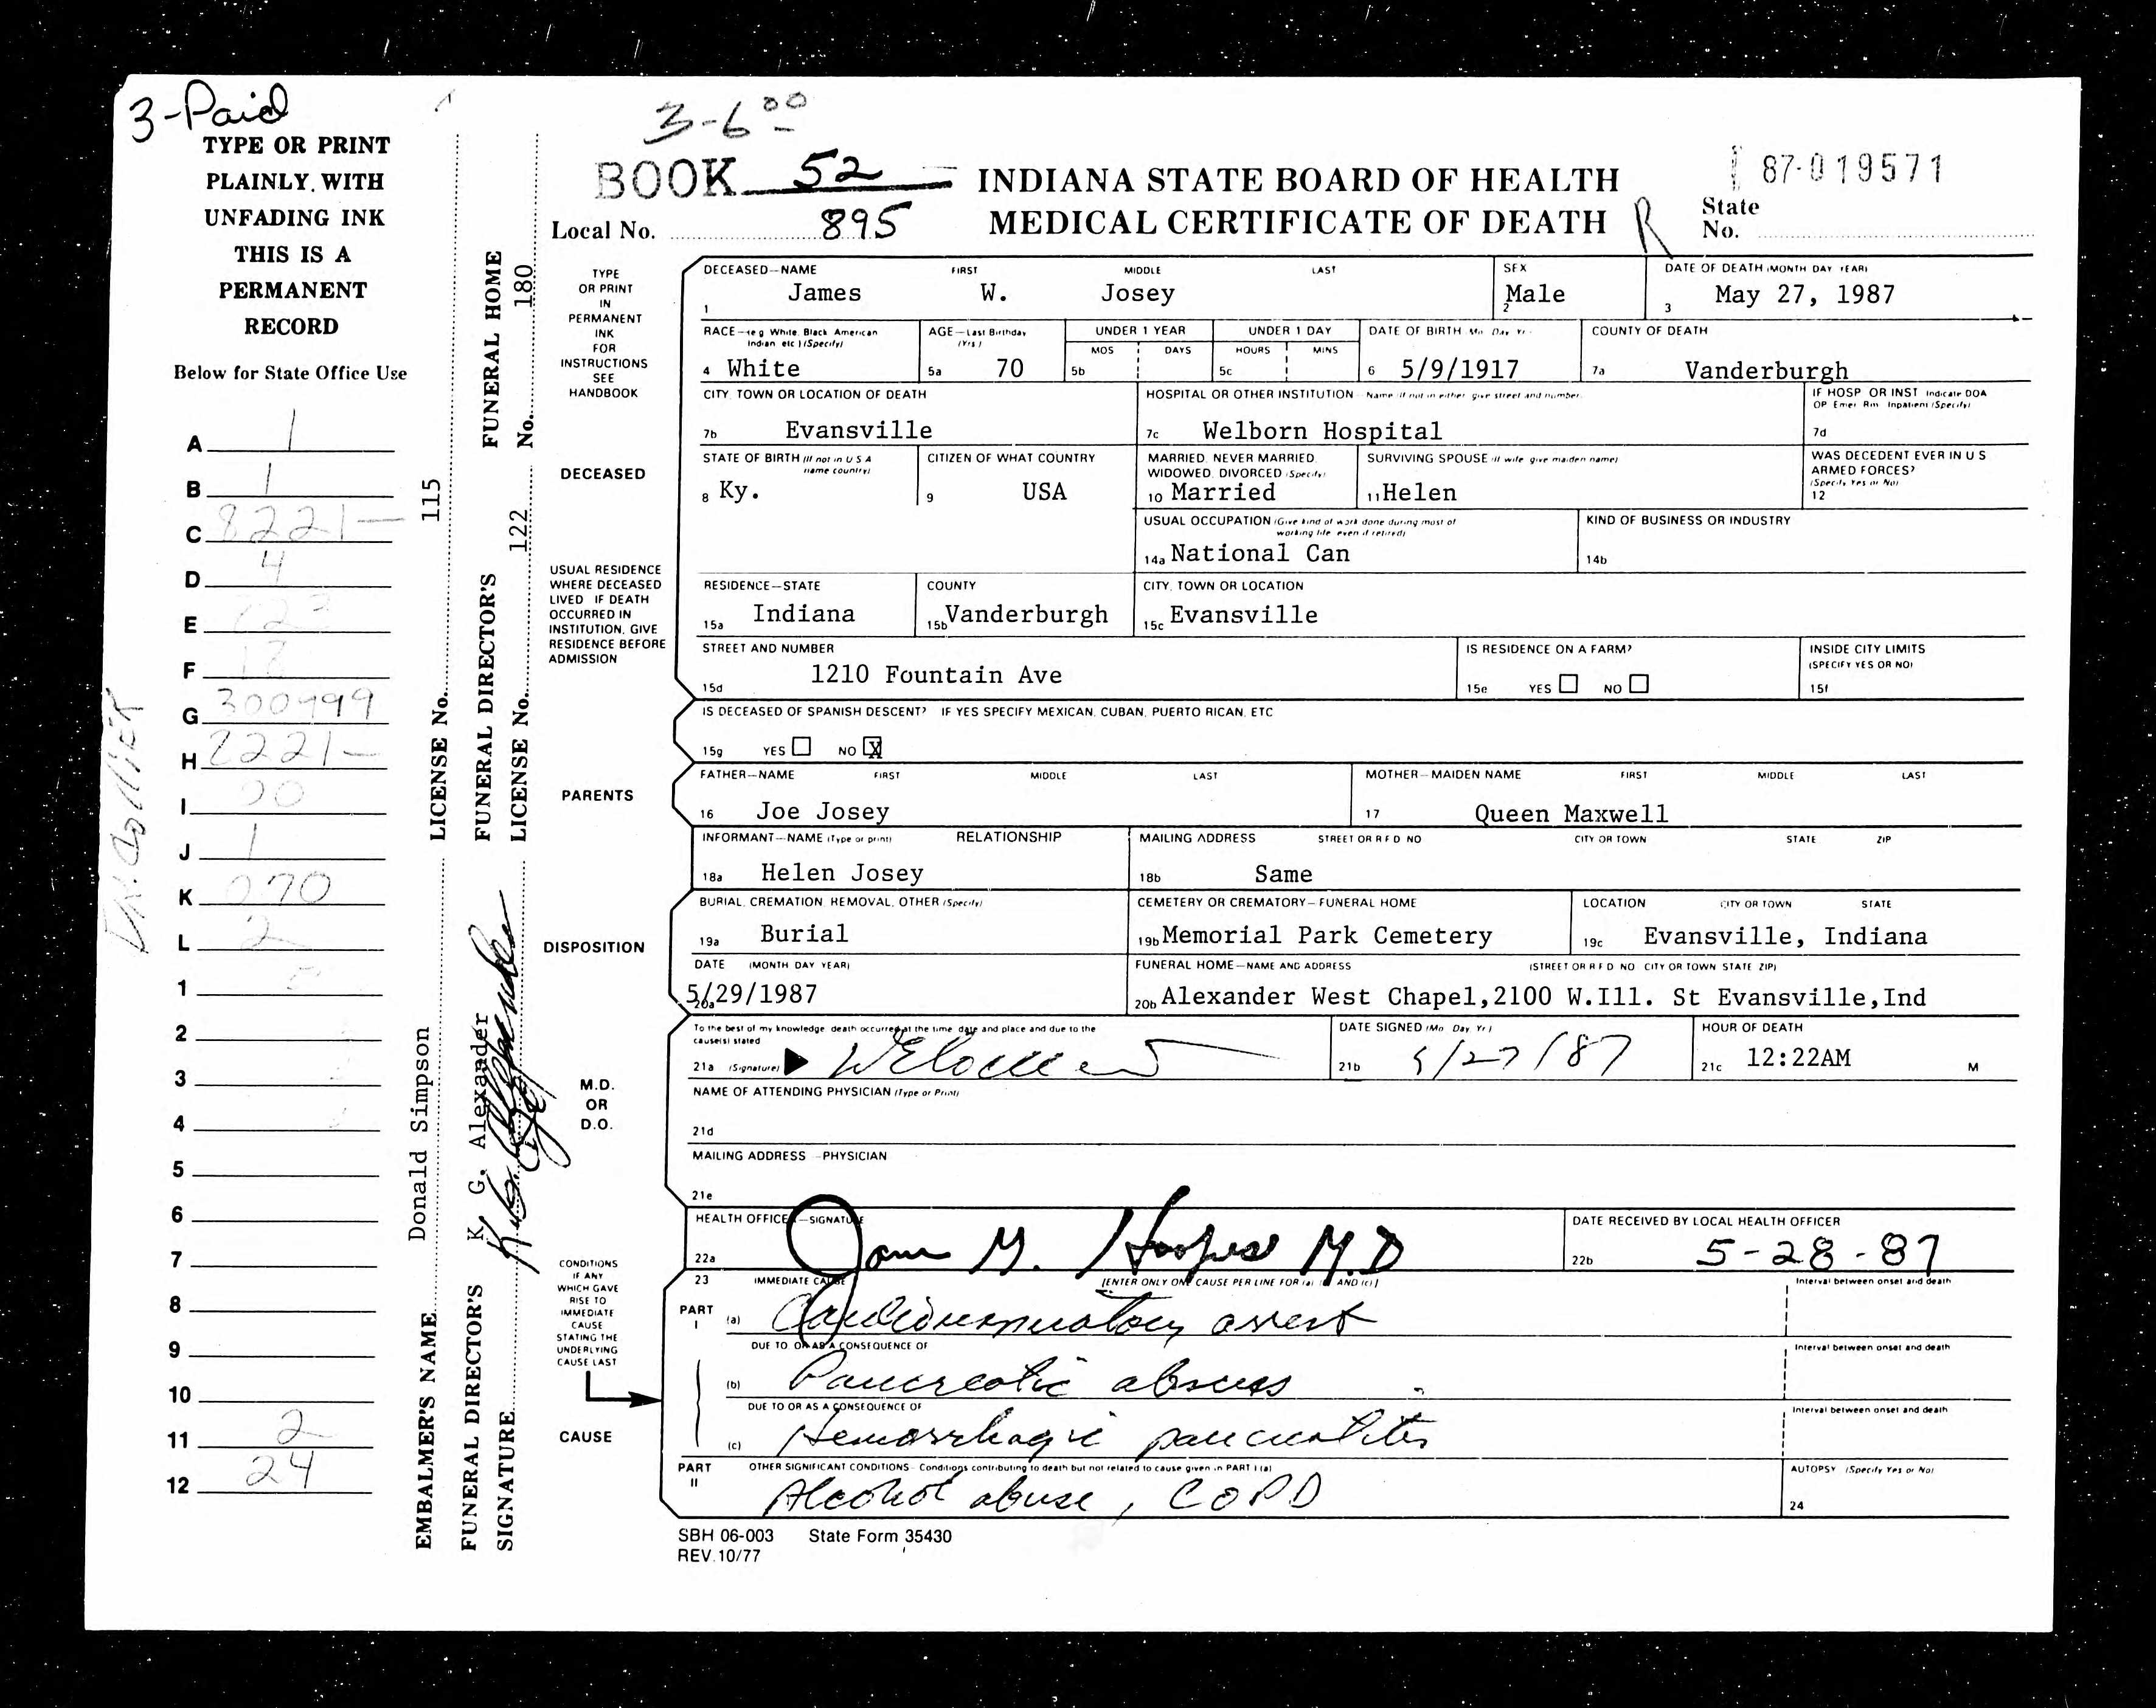 3-Paid
TYPE OR PRINT
PLAINLY, WITH
UNFADING INK
THIS IS A
PERMANENT
RECORD
Below for State Office Use
A 1
B 1
C 8221-
D 4
E
F
G 300999
H 2221-
I 00
J 1
K 070
L 2
1
2
3
4
5
6
7
8
9
10
11 2
12 24
EMBALMER'S NAME Donald Simpson LICENSE No. 115
FUNERAL DIRECTOR'S K. G. Alexander FUNERAL DIRECTOR'S FUNERAL HOME
SIGNATURE LICENSE No. 122 No. 180
3-6 00
BOOK 52
INDIANA STATE BOARD OF HEALTH
MEDICAL CERTIFICATE OF DEATH
R
87-019571
State
No.
Local No. 895
TYPE
OR PRINT
IN
PERMANENT
INK
FOR
INSTRUCTIONS
SEE
HANDBOOK
DECEASED—NAME FIRST MIDDLE LAST SEX DATE OF DEATH (MONTH DAY YEAR)
1 James W. Josey 2 Male 3 May 27, 1987
RACE—(e g White, Black American Indian etc ) (Specify) AGE—Last Birthday (Yrs ) UNDER 1 YEAR UNDER 1 DAY DATE OF BIRTH Mo Day Yr COUNTY OF DEATH
MOS DAYS HOURS MINS
4 White 5a 70 5b 5c 6 5/9/1917 7a Vanderburgh
CITY, TOWN OR LOCATION OF DEATH HOSPITAL OR OTHER INSTITUTION - Name (If not in either give street and number) IF HOSP OR INST Indicate DOA OP Emer Rm Inpatient (Specify)
7b Evansville 7c Welborn Hospital 7d
DECEASED
STATE OF BIRTH (If not in U S A name country) CITIZEN OF WHAT COUNTRY MARRIED, NEVER MARRIED, WIDOWED, DIVORCED (Specify) SURVIVING SPOUSE (If wife give maiden name) WAS DECEDENT EVER IN U S ARMED FORCES? (Specify Yes or No)
8 Ky. 9 USA 10 Married 11 Helen 12
USUAL OCCUPATION (Give kind of work done during most of working life even if retired) KIND OF BUSINESS OR INDUSTRY
14a National Can 14b
USUAL RESIDENCE
WHERE DECEASED
LIVED IF DEATH
OCCURRED IN
INSTITUTION, GIVE
RESIDENCE BEFORE
ADMISSION
RESIDENCE—STATE COUNTY CITY, TOWN OR LOCATION
15a Indiana 15b Vanderburgh 15c Evansville
STREET AND NUMBER IS RESIDENCE ON A FARM? INSIDE CITY LIMITS (SPECIFY YES OR NO)
15d 1210 Fountain Ave 15e YES NO 15f
IS DECEASED OF SPANISH DESCENT? IF YES SPECIFY MEXICAN, CUBAN, PUERTO RICAN, ETC
15g YES NO X
PARENTS
FATHER—NAME FIRST MIDDLE LAST MOTHER—MAIDEN NAME FIRST MIDDLE LAST
16 Joe Josey 17 Queen Maxwell
INFORMANT—NAME (Type or print) RELATIONSHIP MAILING ADDRESS STREET OR R F D NO CITY OR TOWN STATE ZIP
18a Helen Josey 18b Same
DISPOSITION
BURIAL, CREMATION, REMOVAL, OTHER (Specify) CEMETERY OR CREMATORY—FUNERAL HOME LOCATION CITY OR TOWN STATE
19a Burial 19b Memorial Park Cemetery 19c Evansville, Indiana
DATE (MONTH DAY YEAR) FUNERAL HOME—NAME AND ADDRESS (STREET OR R F D NO CITY OR TOWN STATE ZIP)
20a 5/29/1987 20b Alexander West Chapel,2100 W.Ill. St Evansville,Ind
M.D.
OR
D.O.
To the best of my knowledge death occurred at the time date and place and due to the cause(s) stated DATE SIGNED (Mo Day Yr) HOUR OF DEATH
21a (Signature) 21b 5/27/87 21c 12:22AM M
NAME OF ATTENDING PHYSICIAN (Type or Print)
21d
MAILING ADDRESS - PHYSICIAN
21e
HEALTH OFFICER—SIGNATURE DATE RECEIVED BY LOCAL HEALTH OFFICER
22a M. M.D 22b 5-28-87
CONDITIONS
IF ANY
WHICH GAVE
RISE TO
IMMEDIATE
CAUSE
STATING THE
UNDERLYING
CAUSE LAST
CAUSE
23 IMMEDIATE CAUSE [ENTER ONLY ONE CAUSE PER LINE FOR (a) (b) AND (c)] Interval between onset and death
PART I (a) Cardiorespiratory arrest
DUE TO OR AS A CONSEQUENCE OF Interval between onset and death
(b) Pancreatic abscess
DUE TO OR AS A CONSEQUENCE OF Interval between onset and death
(c) Hemorrhagic pancreatitis
PART II OTHER SIGNIFICANT CONDITIONS - Conditions contributing to death but not related to cause given in PART I (a) AUTOPSY (Specify Yes or No)
Alcohol abuse, COPD 24
SBH 06-003 State Form 35430
REV.10/77